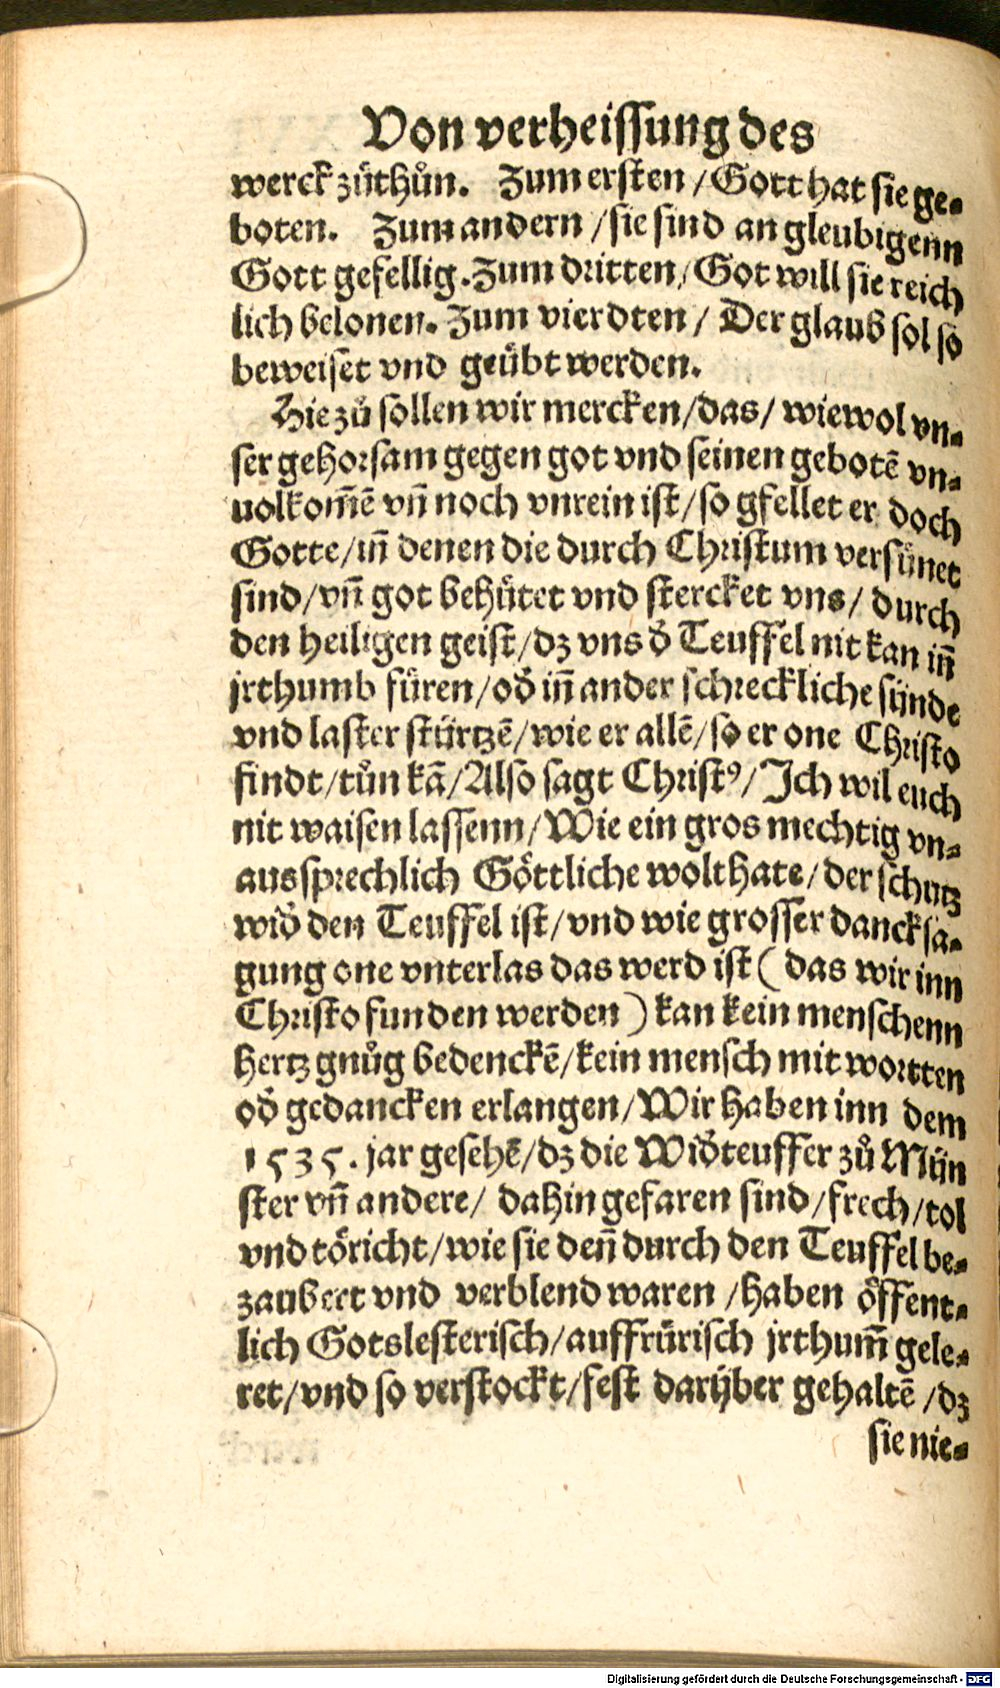 Von verheissung des
werck zůthůn. Zum ersten / Gott hat sie ge-
boten. Zum andern / sie sind an gleubigenn
Gott gefellig. Zum dritten / Got will sie reich
lich belonen. Zum vierdten / Der glaub sol so
beweiset vnd geübt werden.
Hie zů sollen wir mercken / das / wiewol vn-
ser gehorsam gegen got vnd seinen gebotē vn-
uolkom̄ē vn̄ noch vnrein ist / so gfellet er doch
Gotte / in̄ denen die durch Christum versůnet
sind / vn̄ got behůtet vnd stercket vns / durch
den heiligen geist / dz vns d̕ Teuffel nit kan in̄
jrthumb füren / od̕ in̄ ander schreckliche sünde
vnd laster stürtzē / wie er allē / so er one Christo
findt / tůn kā / Also sagt Christꝰ / Ich wil euch
nit waisen lassenn / Wie ein gros mechtig vn-
aussprechlich Göttliche wolthate / der schutz
wid̕ den Teuffel ist / vnd wie grosser dancksa-
gung one vnterlas das werd ist ( das wir inn
Christo funden werden ) kan kein menschenn
hertz gnůg bedenckē / kein mensch mit wortten
od̕ gedancken erlangen / Wir haben inn dem
1535. jar gesehē / dz die Wid̕teuffer zů Mün
ster vn̄ andere / dahin gefaren sind / frech / tol
vnd töricht / wie sie den̄ durch den Teuffel be-
zaubert vnd verblend waren / haben öffent-
lich Gotslesterisch / auffrürisch jrthum̄ gele-
ret / vnd so verstockt / fest darüber gehaltē / dz
sie nie-
Digitalisierung gefördert durch die Deutsche Forschungsgemeinschaft - DFG